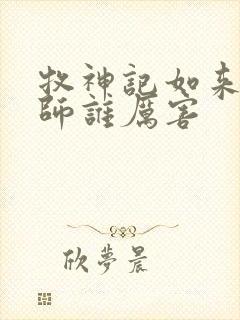 牧神記如來
師誰厲害
欣夢晨